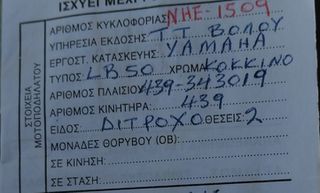 ΙΣΧΥΕΙ ΜΕΧΡΙ
ΑΡΙΘΜΟΣ ΚΥΚΛΟΦΟΡΙΑΣ ΝΗΕ-1509
ΥΠΗΡΕΣΙΑ ΕΚΔΟΣΗΣ Τ.Τ ΒΟΛΟΥ
ΕΡΓΟΣΤ. ΚΑΤΑΣΚΕΥΗΣ YAMAHA
ΤΥΠΟΣ LB50 ΧΡΩΜΑ ΚΟΚΚΙΝΟ
ΑΡΙΘΜΟΣ ΠΛΑΙΣΙΟΥ 439-343019
ΑΡΙΘΜΟΣ ΚΙΝΗΤΗΡΑ: 439
ΕΙΔΟΣ: ΔΙΤΡΟΧΟ ΘΕΣΕΙΣ: 2
ΜΟΝΑΔΕΣ ΘΟΡΥΒΟΥ (ΟΒ):
ΣΕ ΚΙΝΗΣΗ:
ΣΕ ΣΤΑΣΗ:
ΣΤΟΙΧΕΙΑ
ΜΟΤΟΠΟΔΗΛΑΤΟΥ